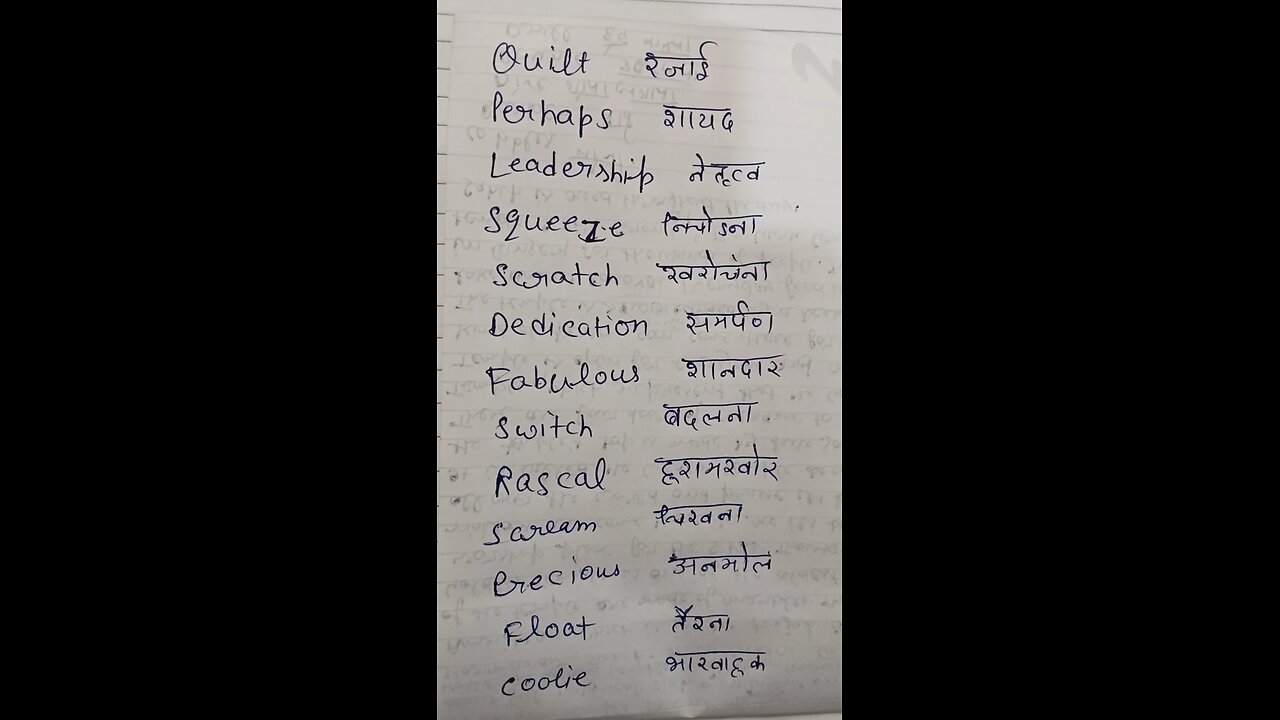 Quilt रजाई
Perhaps शायद
Leadership नेतृत्व
Squeeze निचोडना
Scratch खरोचंना
Dedication समर्पण
Fabulous शानदार
Switch बदलना
Rascal हरामखोर
Scream चिखना
Precious अनमोल
Float तैरना
Coolie भारवाहक